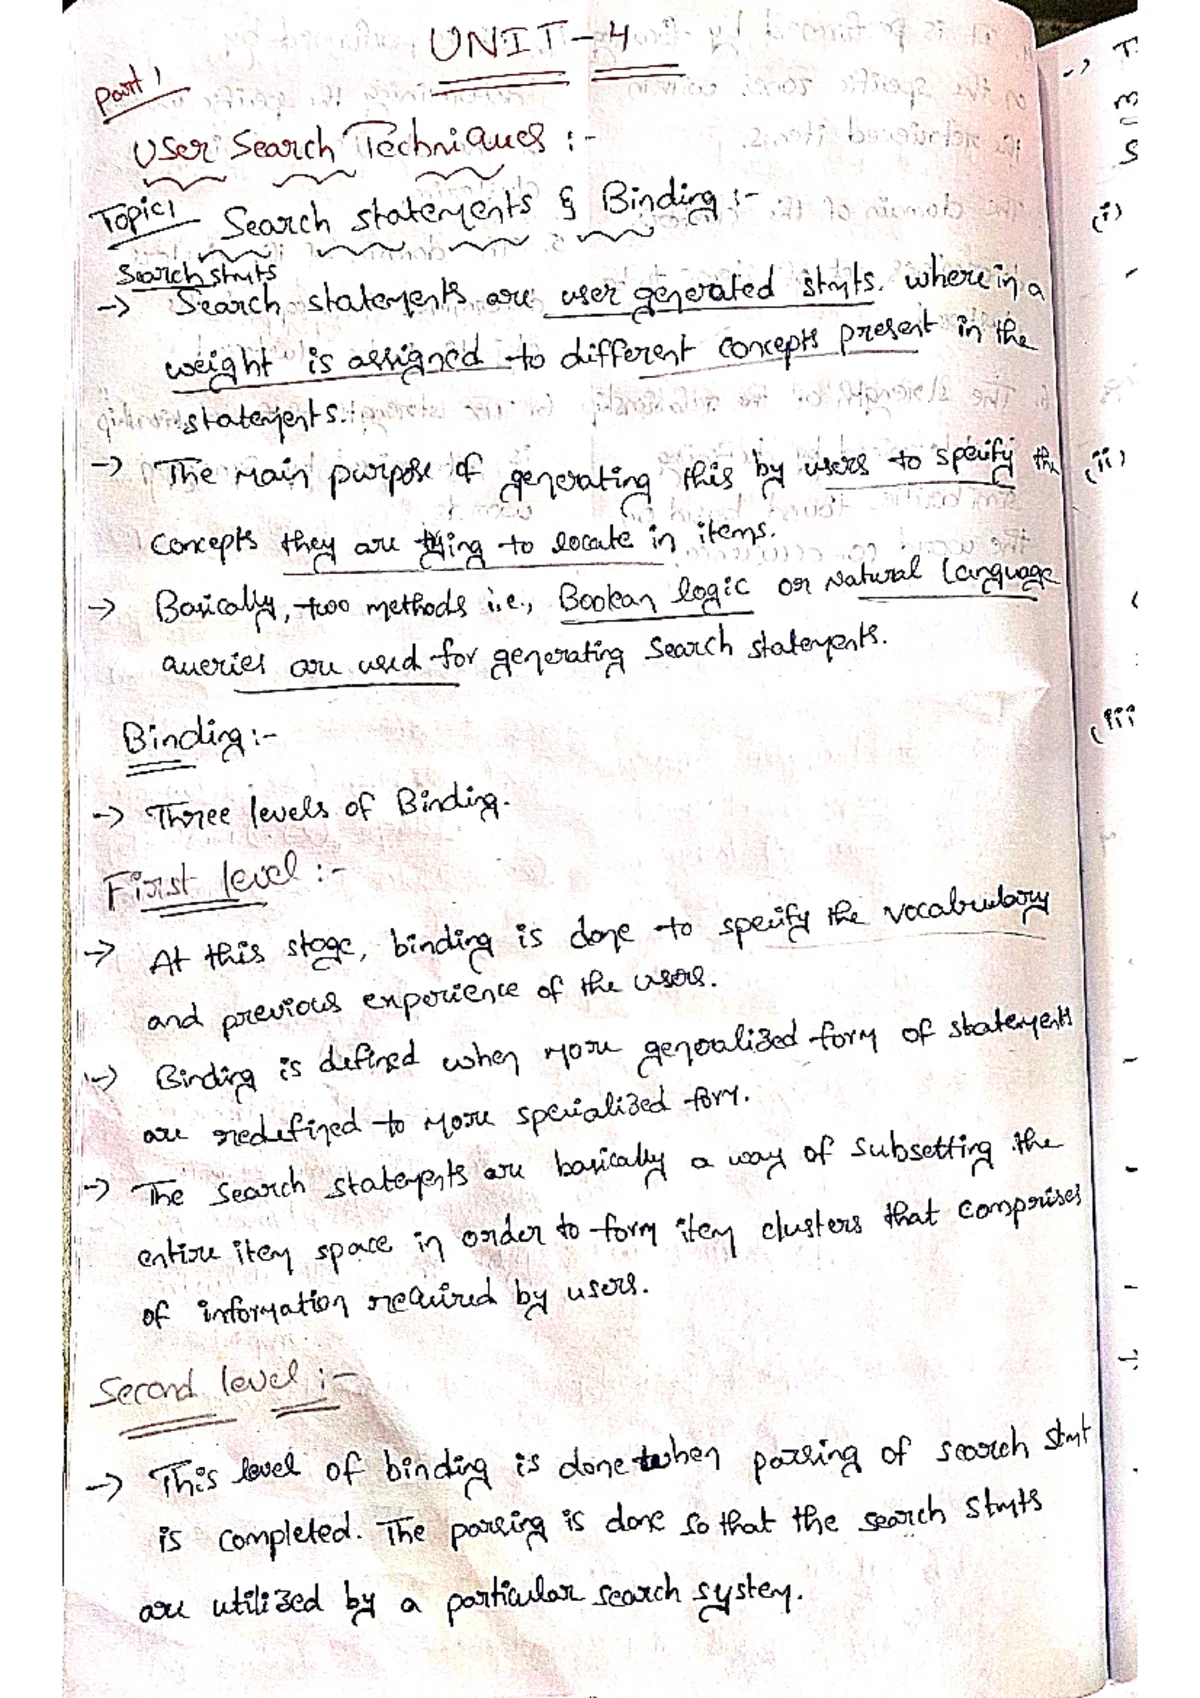 UNIT-4
Part 1
User Search Techniques :-
Topic1 Search statements & Binding :-
Search stmts
-> Search statements are user generated stmts. where in a
weight is assigned to different concepts present in the
statements.
-> The main purpose of generating this by users to specify the
concepts they are trying to locate in items.
-> Basically, two methods i.e., Boolean logic or Natural Language
queries are used for generating search statements.
Binding :-
-> Three levels of Binding.
First level :-
-> At this stage, binding is done to specify the vocabubory
and previous experience of the users.
-> Binding is defined when more generalized form of statements
are redefined to more specialized form.
-> The search statements are basically a way of subsetting the
entire item space in order to form item clusters that comprises
of information required by users.
Second level :-
-> This level of binding is done when parsing of search stmt
is completed. The parsing is done so that the search stmts
are utilized by a particular search system.
(i)
(ii)
(iii